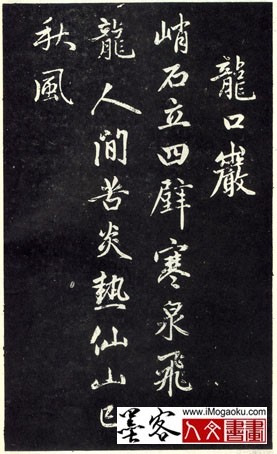 龍口巖
峭石立四壁寒泉飛
龍人間苦炎熱仙山已
秋風
墨客
www.iMogaoku.com
人文書畫